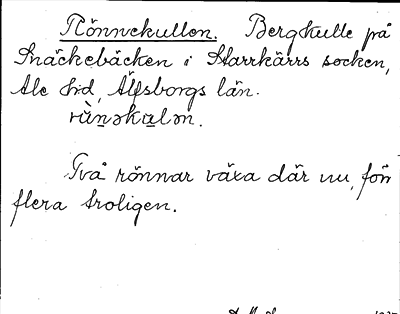 Rönnekullen. Bergkulle på
Snäckebäcken i Starrkärrs socken,
Ale hd, Älfsborgs län.
rùn̲əku̲lən.
Två rönnar växa där nu, förr
flera troligen.